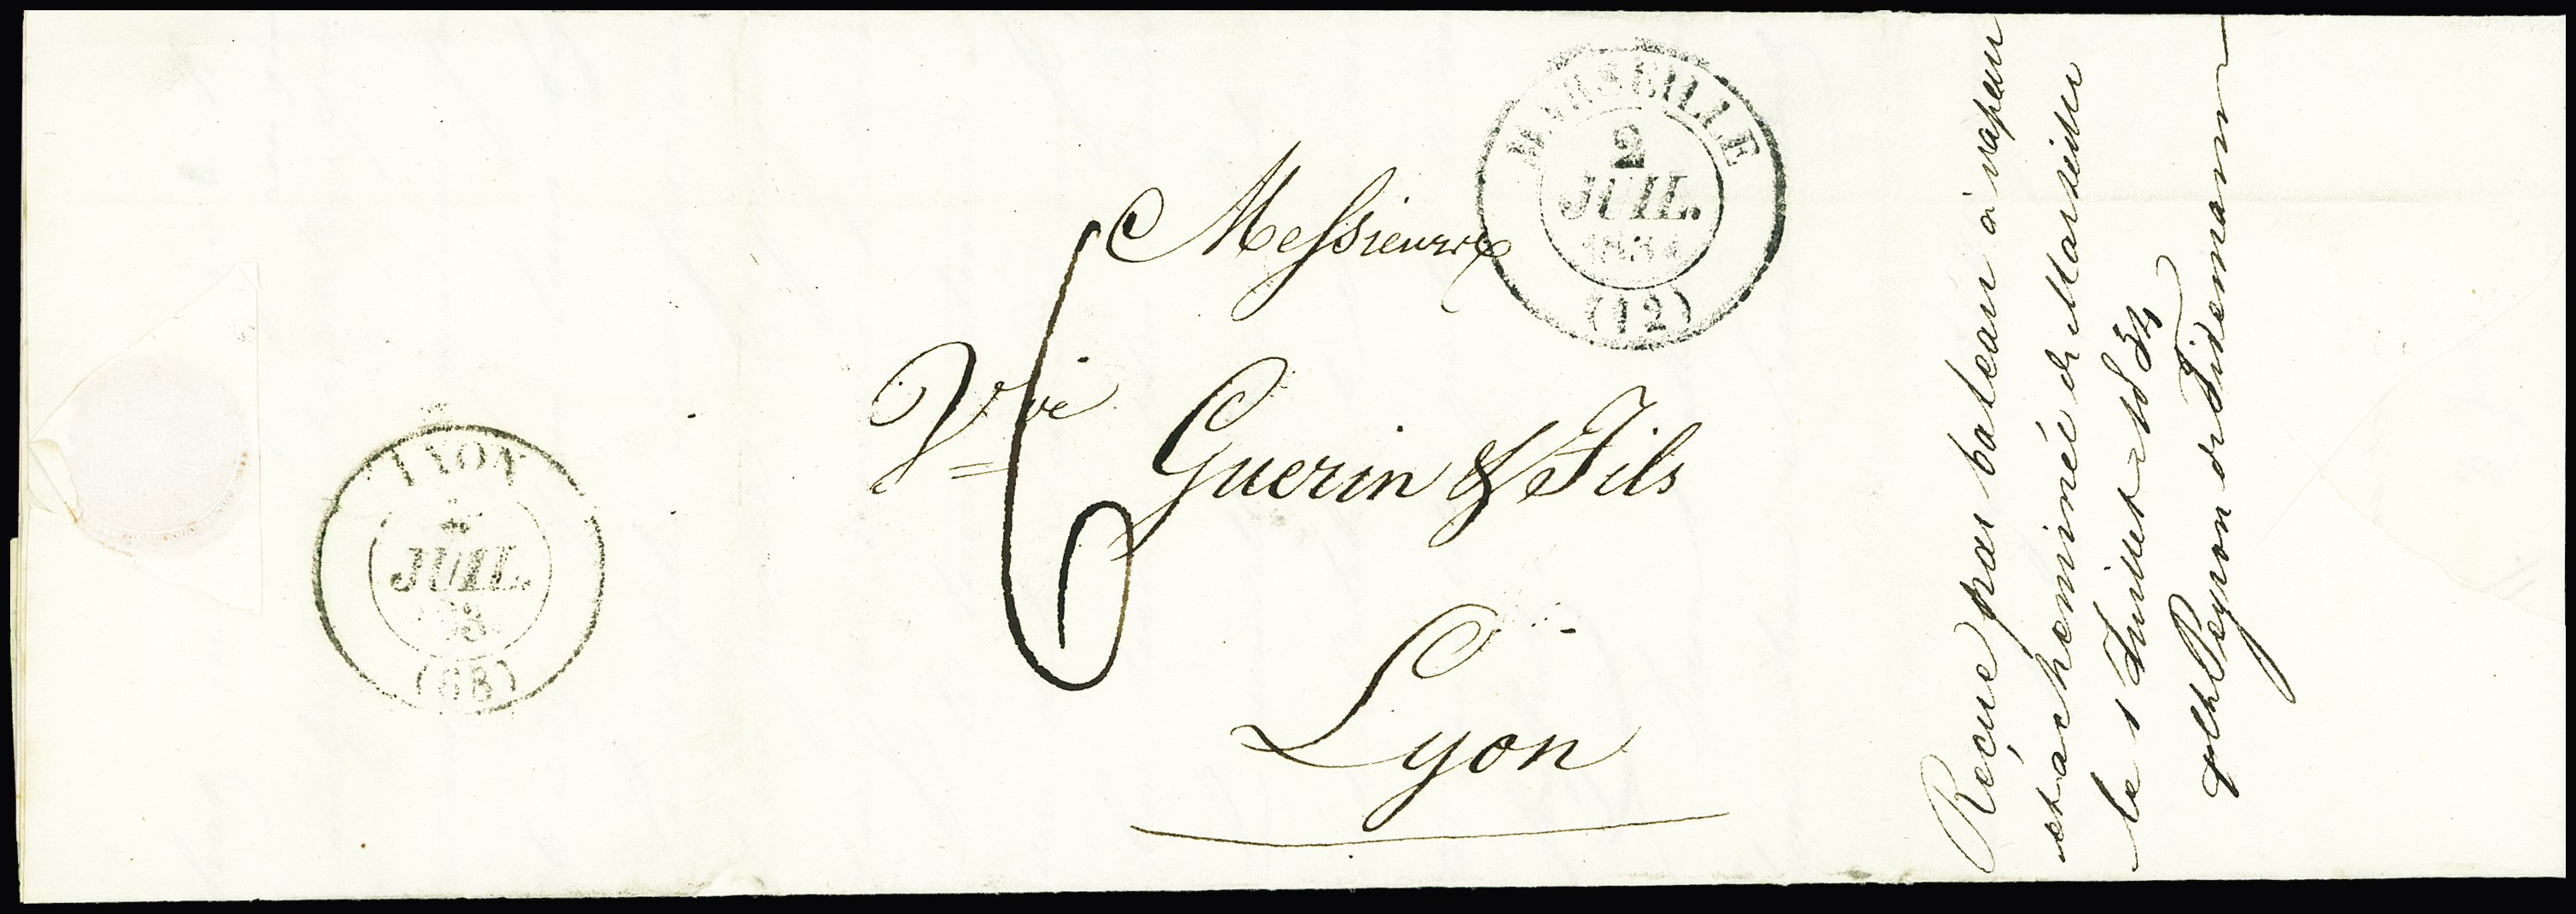 MARSEILLE
2
JUIL.
1834
(12)
Messieurs
Vve Guerin & Fils
Lyon
6
LYON
JUIL.
(68)
Reçue par bateau à vapeur
et acheminée de Marseille
le 1 Juillet 1834
Peyron & Tidemann